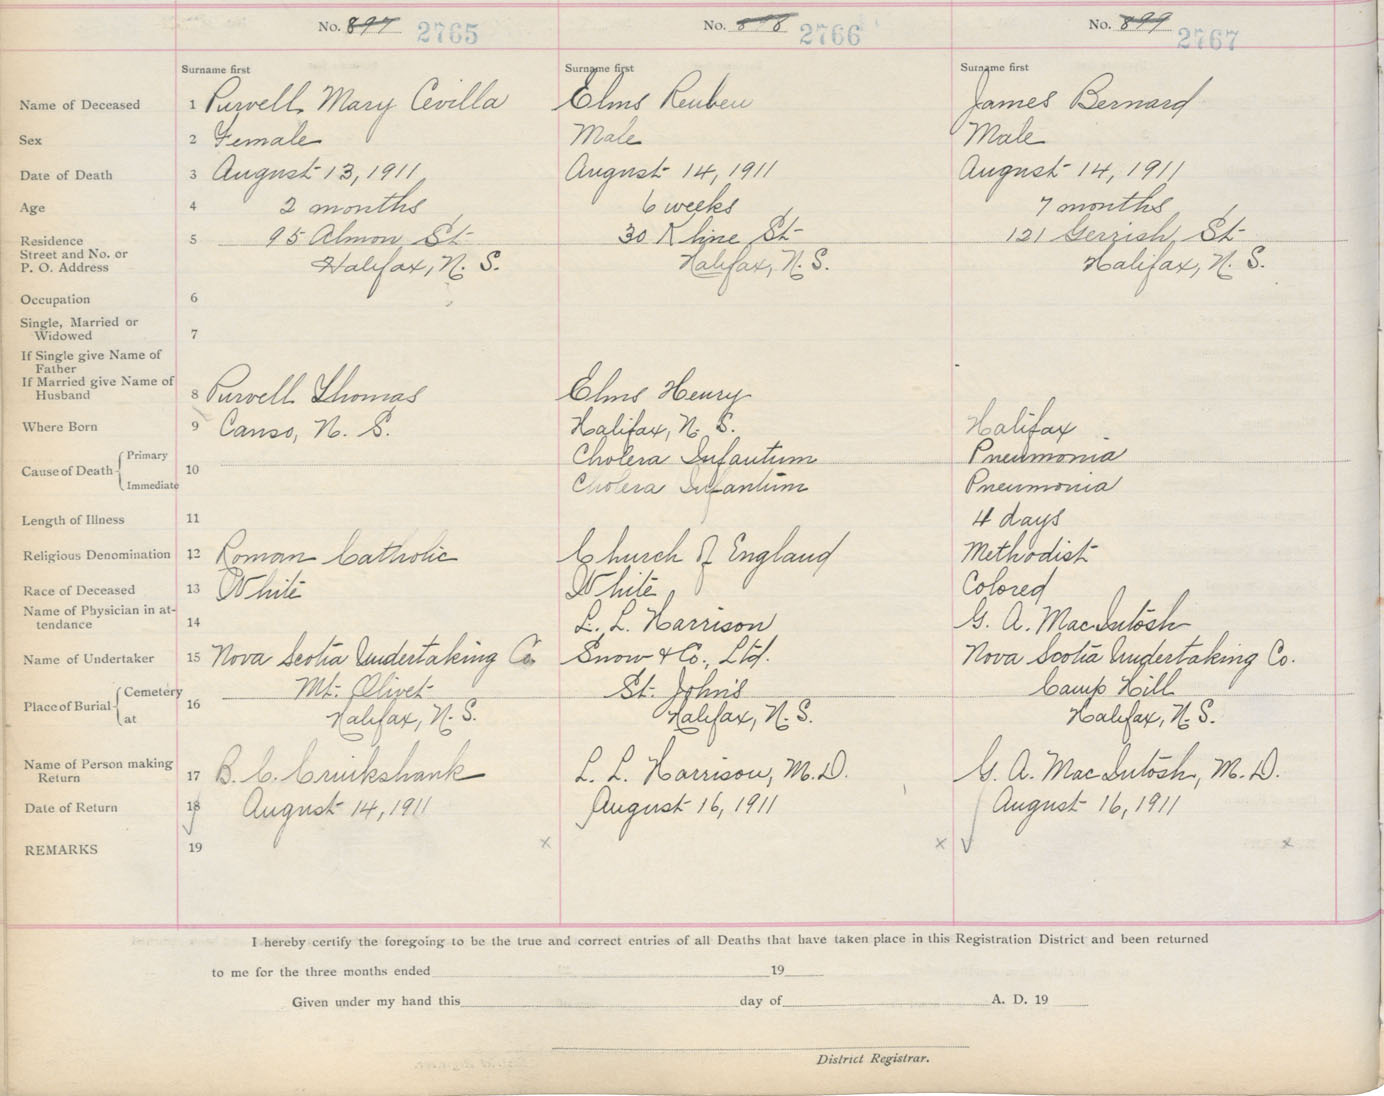 No. 897 2765 No. 898 2766 No. 899 2767
Surname first Surname first Surname first
Name of Deceased 1 Purvell Mary Cevilla Elms Reuben James Bernard
Sex 2 Female Male Male
Date of Death 3 August 13, 1911 August 14, 1911 August 14, 1911
Age 4 2 months 6 weeks 7 months
Residence 5 95 Almon St 30 Kline St 121 Gerrish St
Street and No. or
P. O. Address Halifax, N. S. Halifax, N. S. Halifax, N. S.
Occupation 6
Single, Married or
Widowed 7
If Single give Name of
Father
If Married give Name of
Husband 8 Purvell Thomas Elms Henry
Where Born 9 Canso, N. S. Halifax, N. S. Halifax
Cause of Death Primary 10 Cholera Infantum Pneumonia
Immediate Cholera Infantum Pneumonia
Length of Illness 11 4 days
Religious Denomination 12 Roman Catholic Church of England Methodist
Race of Deceased 13 White White Colored
Name of Physician in at-
tendance 14 L. L. Harrison G. A. MacIntosh
Name of Undertaker 15 Nova Scotia Undertaking Co. Snow & Co., Ltd. Nova Scotia Undertaking Co.
Place of Burial Cemetery 16 Mt. Olivet St. John's Camp Hill
at Halifax, N. S. Halifax, N. S. Halifax, N. S.
Name of Person making
Return 17 B. C. Cruikshank L. L. Harrison, M.D. G. A. MacIntosh, M.D.
Date of Return 18 August 14, 1911 August 16, 1911 August 16, 1911
REMARKS 19 x x x
I hereby certify the foregoing to be the true and correct entries of all Deaths that have taken place in this Registration District and been returned
to me for the three months ended 19
Given under my hand this day of A. D. 19
District Registrar.